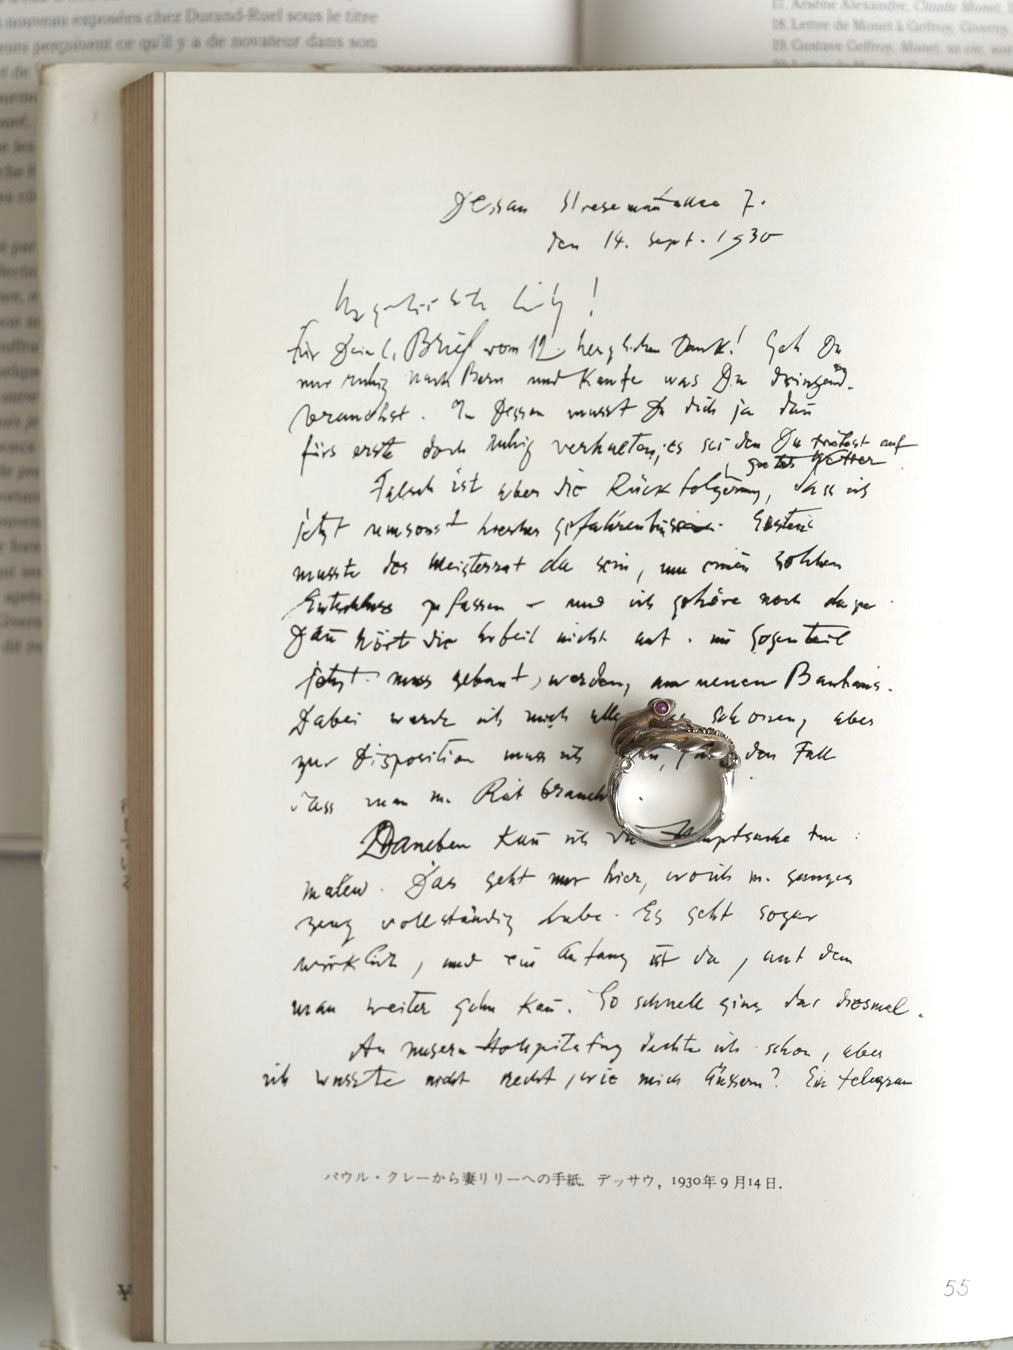 nouveau exposées chez Durand-Ruel sous le titre
perçoivent ce qu'il y a de novateur dans son
17. Arsène Alexandre, Claude Monet,
18. Lettre de Monet à Geffroy, Giverny,
19. Gustave Geffroy, Monet, sa vie, son
Dessau Stresemannallee 7.
den 14. Sept. 1930
Lily!
für Dein l. Brief vom 12. herzlichen Dank! Geh Du
nur ruhig nach Bern und Kaufe was Du dringend
brauchst. In Dessau musst Du dich ja dañ
fürs erste doch ruhig verhalten, es sei den Du auf
Falsch ist aber die Rückfolgerung, dass ich
jetzt umsonst hierher gefahren bin
musste der Meisterrat da sein, um einen solchen
Entschluss zu fassen – und ich gehöre noch dazu
Dañ hört die Arbeit nicht auf. im Gegenteil
jetzt muss gebaut, werden, am neuen Bauhaus.
Dabei werde ich mich schonen, aber
zur Disposition muss ich den Fall
dass man m. Rat brauch
Daneben Kañ ich die Hauptsache tun:
malen. Das geht nur hier, wo ich m. ganzes
zeug vollständig habe. Es geht sogar
wirklich, und ein Anfang ist da, auf dem
man weiter gehn Kañ. So schnell ging das diesmal.
An unsern Hochzeitstag dachte ich schon, aber
ich wusste nicht recht, wie mich äussern? Ein telegram
パウル・クレーから妻リリーへの手紙. デッサウ, 1930年9月14日.
¥
55